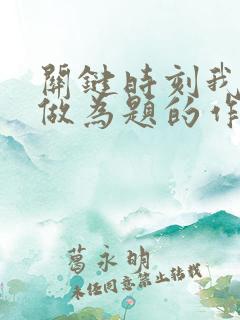 關鍵時刻我
做為題的作
葛永明
未经同意禁止转载